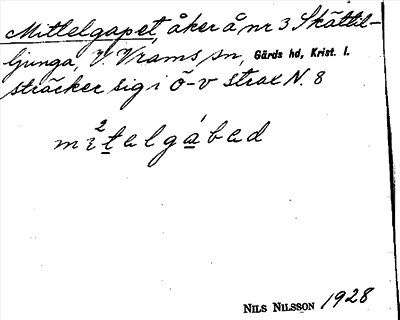 Mittelgapet, åker å nr 3 Skättil-
ljunga, V. Vrams sn, Gärds hd, Krist. l.
sträcker sig i ö-v strax N. 8
mi²telgábad
NILS NILSSON 1928